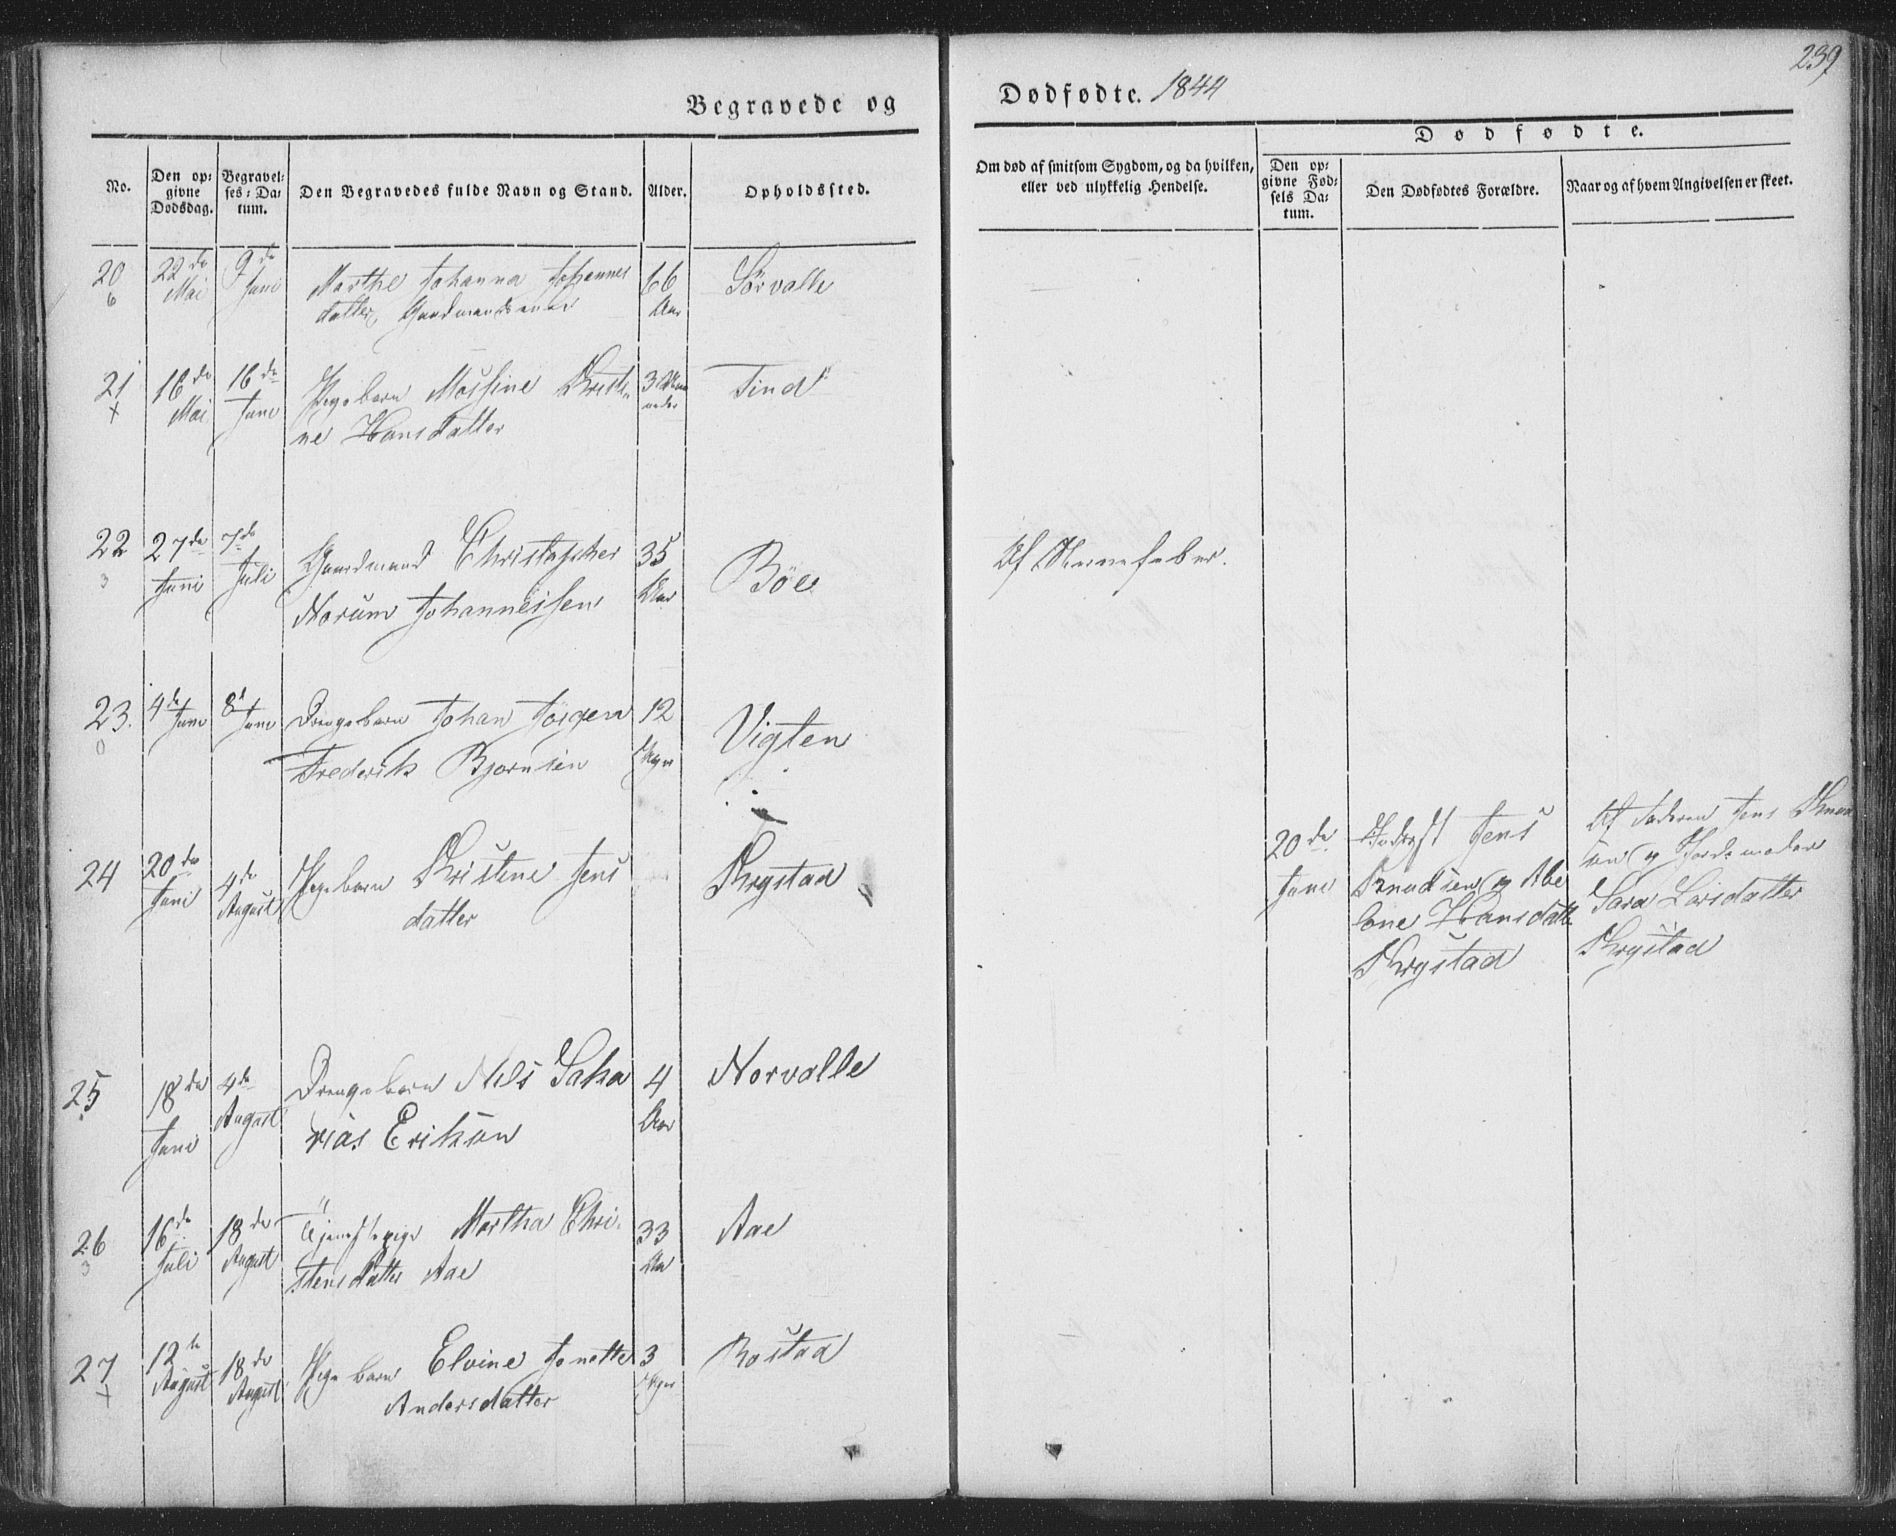 239
Begravede og Dødfødte. 1844
Dødfødte.
No.
Den opgivne Dødsdag.
Begravelses-Datum.
Den Begravedes fulde Navn og Stand.
Alder.
Opholdssted.
Om død af smitsom Sygdom, og da hvilken, eller ved ulykkelig Hendelse.
Den opgivne Fødsels Datum.
Den Dødfødtes Forældre.
Naar og af hvem Angivelsen er skeet.
20 22de 9de Marthe Johanna Johannes 66 Sörvalle
6 Mai Juni datter, Aar
21 16de 16de Pigebarn Mossine Kristi 3 Tind
+ Mai Juni ne Hansdatter
22 27de 7de Gaardmand Christopher 35 Böe
3 Juni Juli Norum Johannessen Aar
23. 4de Juni 8d Juni Drengebarn Johan Jörgen 12 Vigten
0 Frederik Bjornsen Uger
24 20de 4de Pigebarn Kristine Jens Krystad
Juni August datter
20de
Juni
Jens
Knudsen og Abe
lone Hansdatt
Krystad
Af Faderen Jens Knud
sen og Jordemoder
Sara Larsdatter
Krystad
25 18de 4de Drengebarn Nils Saka 4 Norvalle
Juni August rias Erikson Aar
26 16de 18de Tjenestepige Martha Chri 33 Aae
3 Juli August stensdatter Aae Aar
27 12te 18de Pigebarn Elvine Jonette 3 Rostad
+ August August Andersdatter Uger